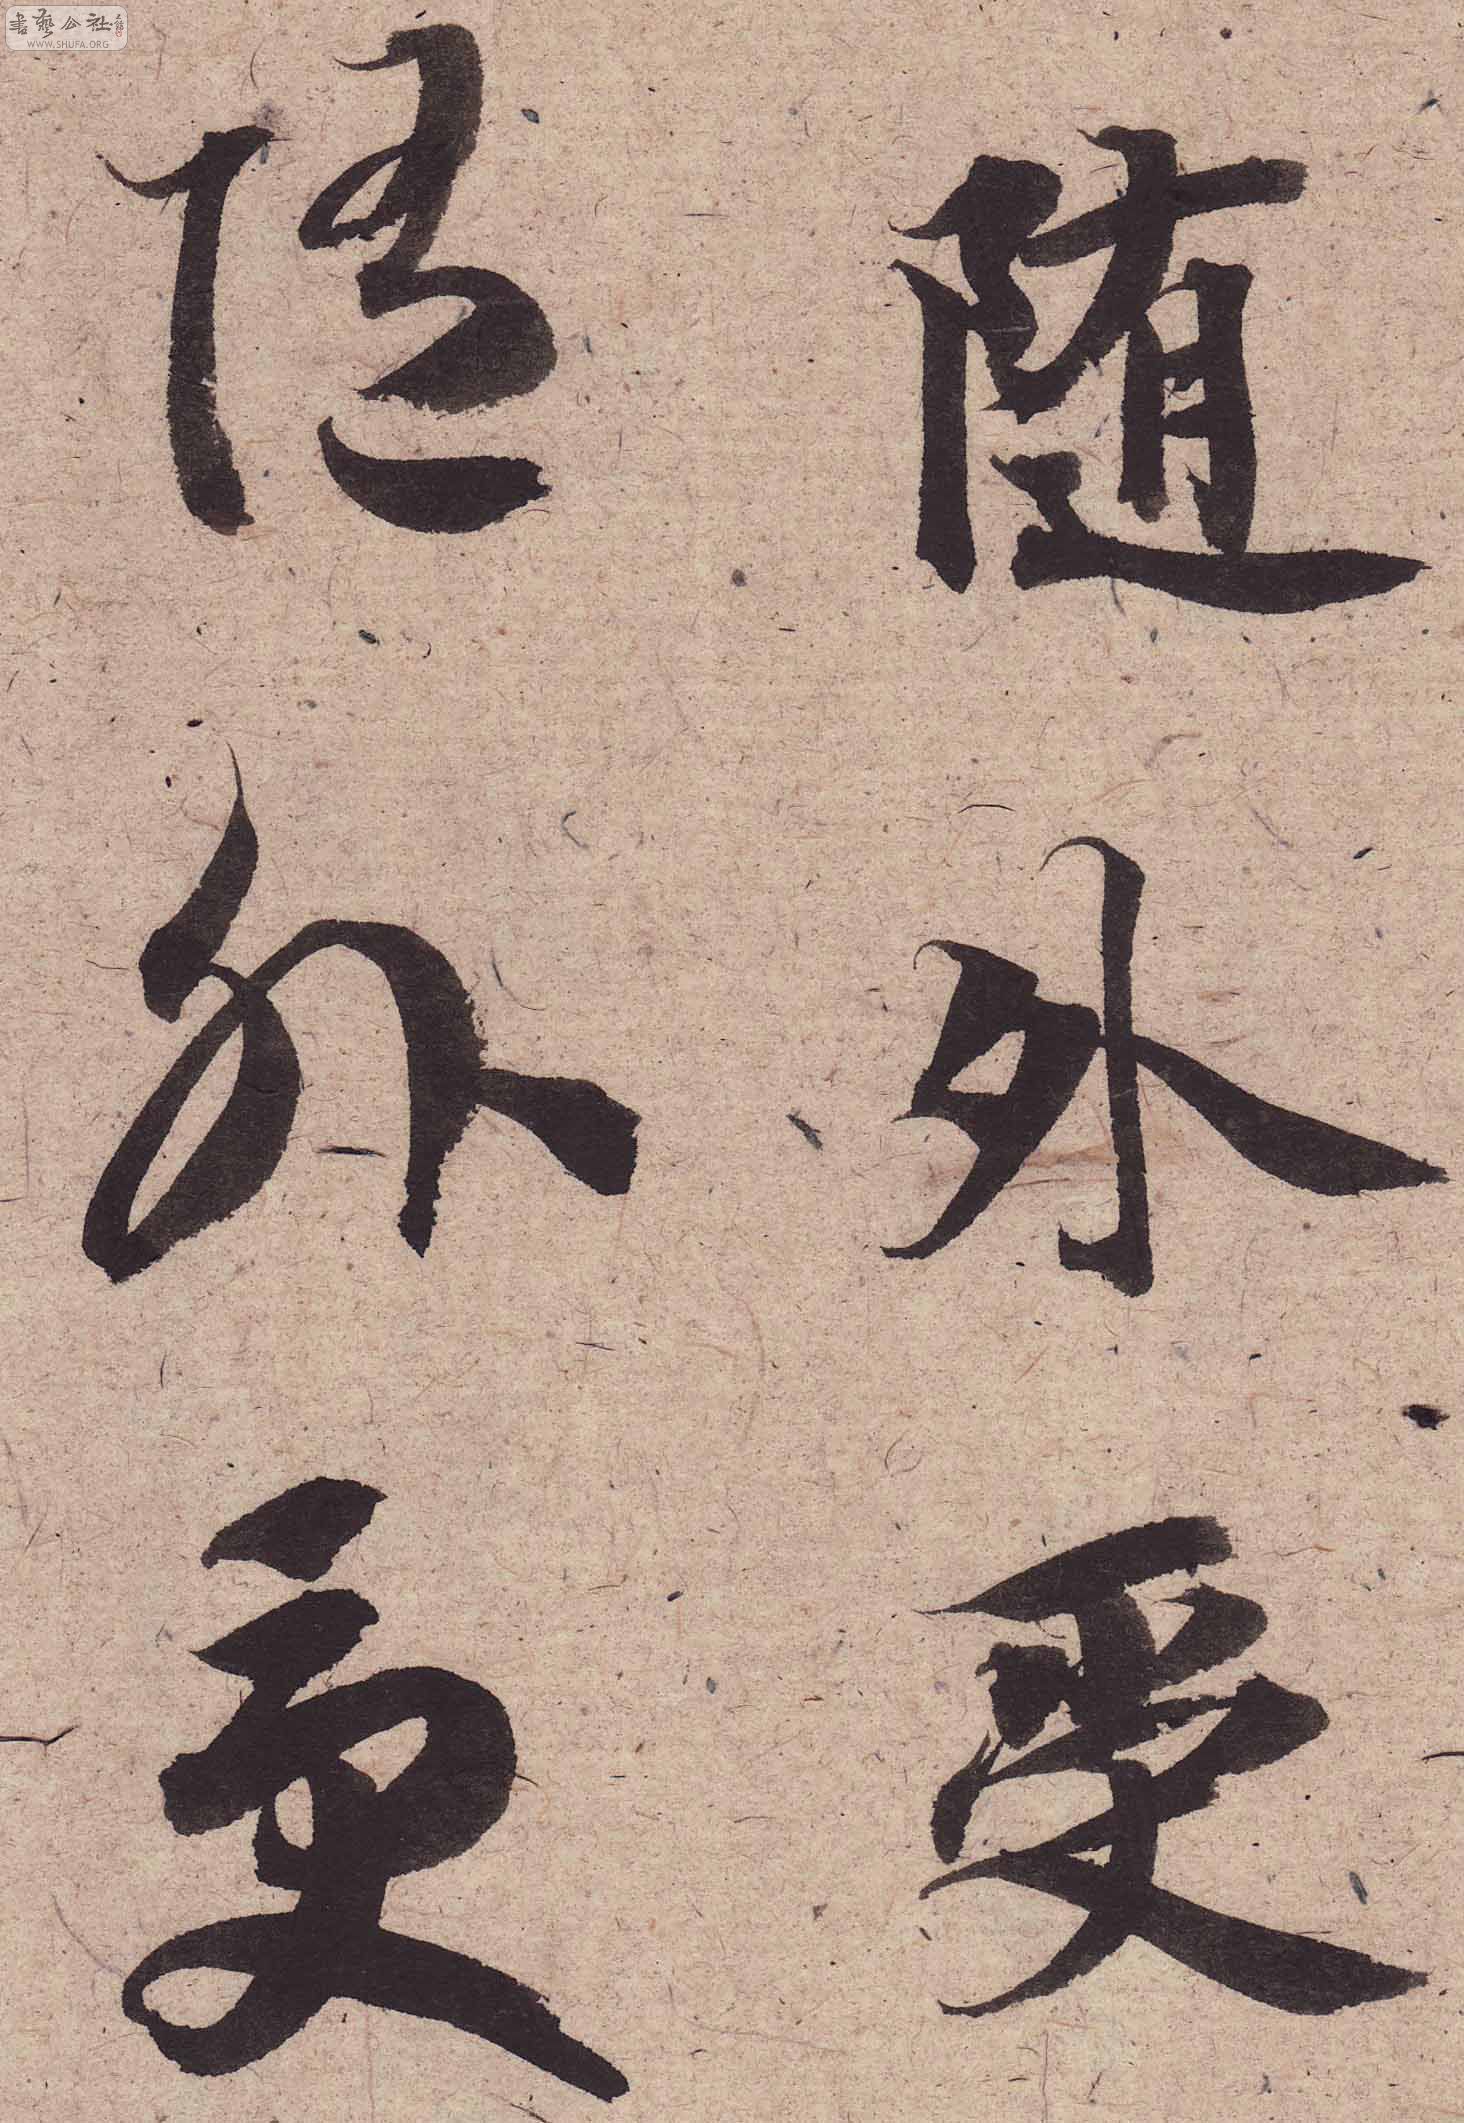 書藝公社
WWW.SHUFA.ORG
随外受
随外受